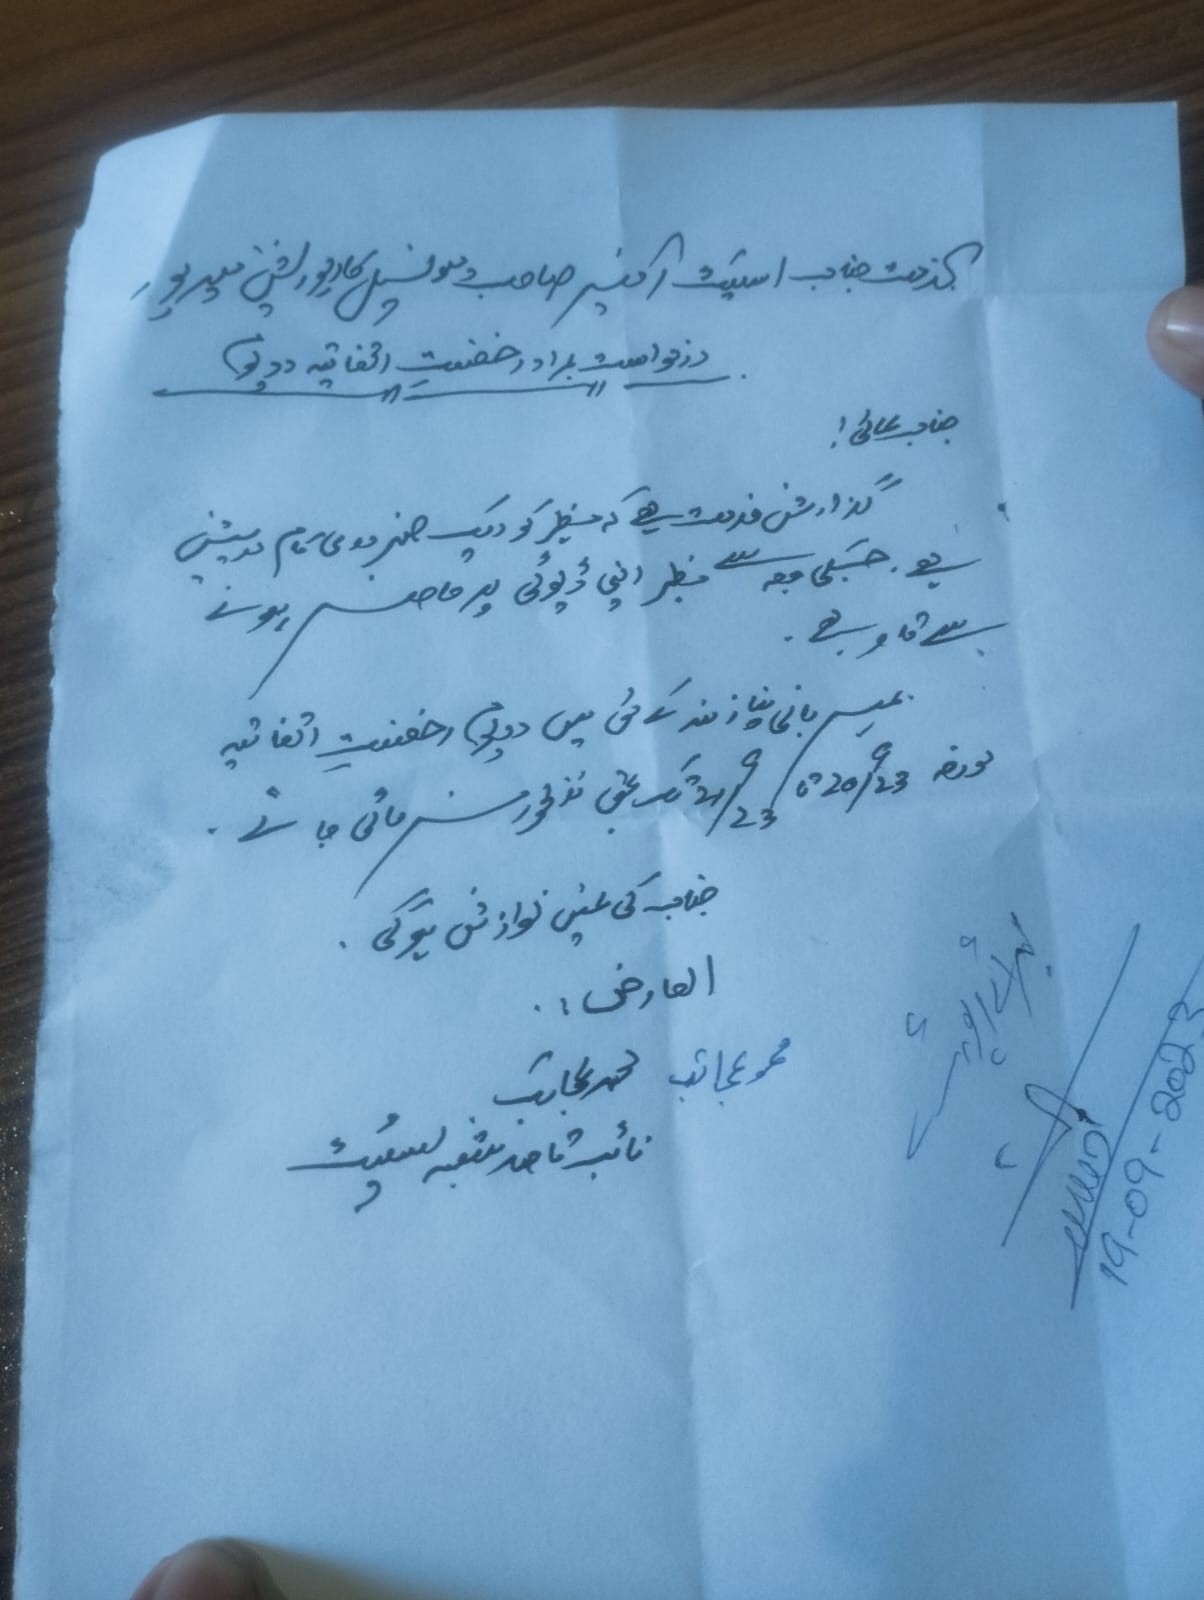 بخدمت جناب اسٹیٹ آفیسر صاحب میونسپل کارپوریشن میرپور
درخواست بمراد رخصت اتفاقیہ دو یوم
جناب عالی!
گذارش خدمت ہے کہ مظہر کو ایک ضروری کام درپیش
ہے۔ جسکی وجہ سے مظہر اپنی ڈیوٹی پر حاضر ہونے
سے قاصر ہے۔
بمہربانی نیازمند کے حق میں دو یوم رخصت اتفاقیہ
مورخہ 20/9/23 تا 21/9/23 تک منظور فرمائی جائے۔
جناب کی عین نوازش ہوگی۔
العارض:۔
محمد عجائب محمد عجائب
نائب قاصد شعبہ اسٹیٹ
19-09-2023